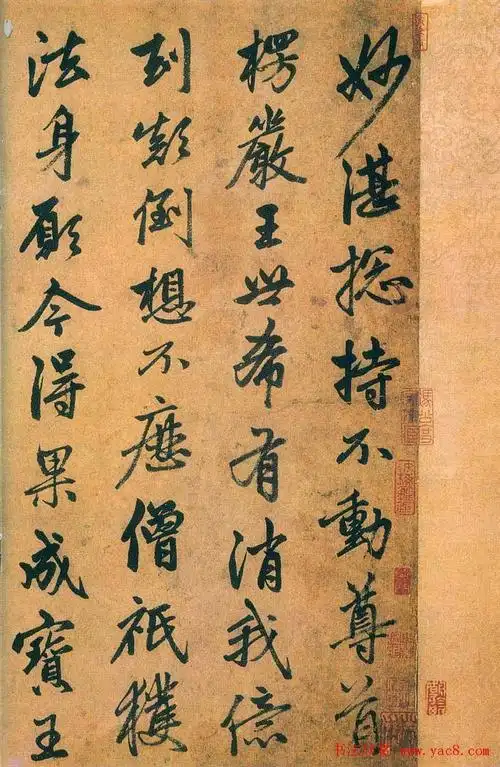 妙湛揔持不動尊首
楞嚴王世希有消我億
劫顛倒想不歷僧祇穫
法身願今得果成寶王
书法欣赏 www.yac8.com